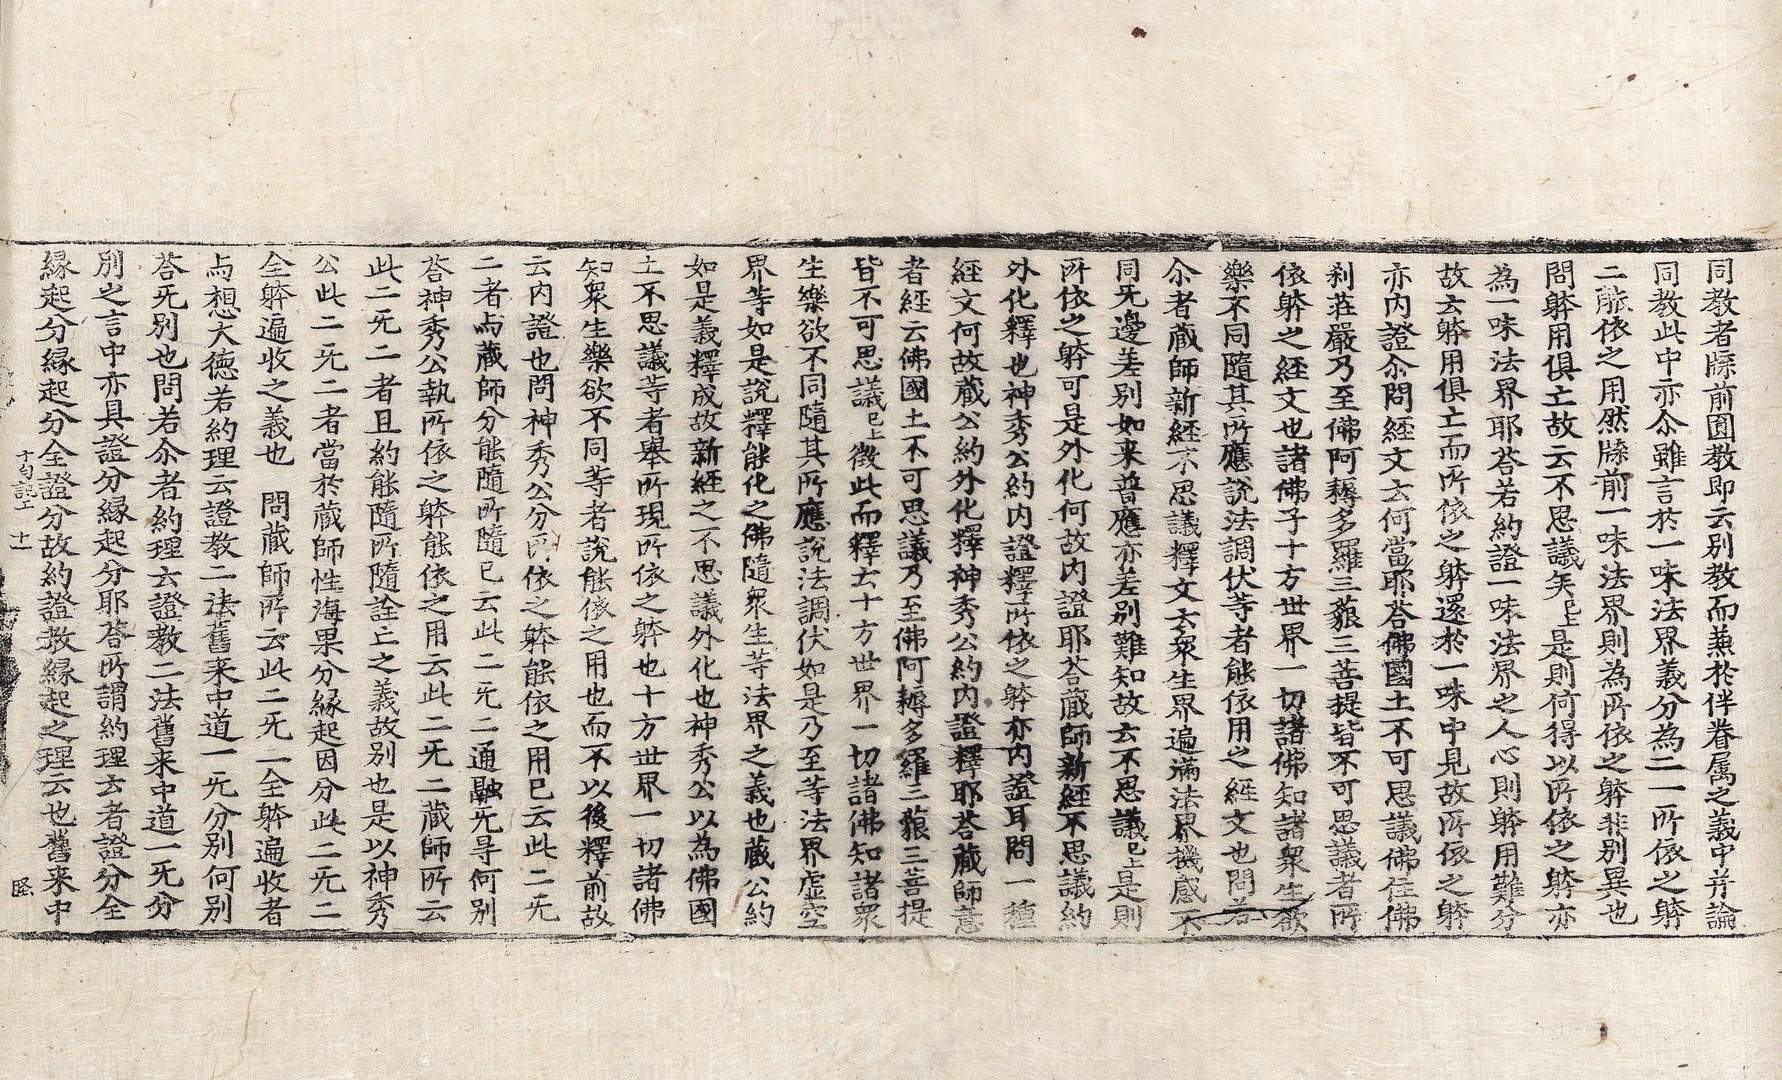 同教者牒前圎教即云別教而兼於伴眷属之義中并論
同教此中亦尒雖言於一味法界義分為二一所依之躰
二能依之用然牒前一味法界則為所依之躰非別異也
問躰用俱亡故云不思議矣已上是則何得以所依之躰亦
為一味法界耶荅若約證一味法界之人心則躰用難分
故云躰用俱亡而所依之躰還於一味中見故所依之躰
亦內證尒問經文云何當耶荅佛國土不可思議佛住佛
刹莊嚴乃至佛阿耨多羅三藐三菩提皆不可思議者所
依躰之經文也諸佛子十方世界一切諸佛知諸衆生欲
樂不同隨其所應說法調伏等者能依用之經文也問若
尒者蔵師新經不思議釋文云衆生界遍滿法界機感不
同旡邊差別如来普應亦差別難知故云不思議已上是則
所依之躰可是外化何故內證耶荅蔵師新經不思議約
外化釋也神秀公約內證釋所依之躰亦內證耳問一種
經文何故蔵公約外化釋神秀公約內證釋耶荅蔵師意
者經云佛國土不可思議乃至佛阿耨多羅三藐三菩提
皆不可思議已上徵此而釋云十方世界一切諸佛知諸衆
生樂欲不同隨其所應說法調伏如是乃至等法界虛空
界等如是說釋能化之佛隨衆生等法界之義也蔵公約
如是義釋成故新經之不思議外化也神秀公以為佛國
土不思議等者舉所現所依之躰也十方世界一切諸佛
知衆生樂欲不同等者說能依之用也而不以後釋前故
云內證也問神秀公分所依之躰能依之用已云此二旡
二者與蔵師分能隨所隨已云此二旡二通融旡㝵何別
荅神秀公執所依之躰能依之用云此二旡二蔵師所云
此二旡二者且約能隨所隨詮上之義故別也是以神秀
公此二旡二者當於蔵師性海果分緣起因分此二旡二
全躰遍收之義也 問蔵師所云此二旡二全躰遍收者
與想大德若約理云證教二法舊来中道一旡分別何別
荅旡別也問若尒者約理云證教二法舊来中道一旡分
別之言中亦具證分緣起分耶荅所謂約理云者證分全
緣起分緣起分全證分故約證教緣起之理云也舊来中
十句記上 十一